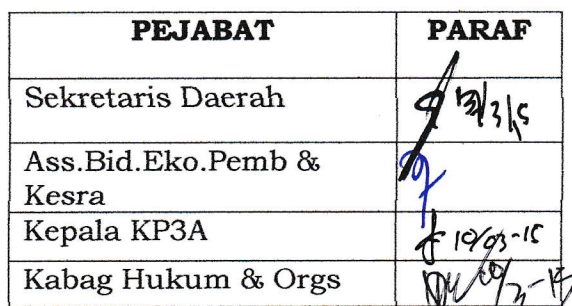 PEJABAT PARAF
Sekretaris Daerah
Ass.Bid.Eko.Pemb &
Kesra
Kepala KP3A 10/03-15
Kabag Hukum & Orgs